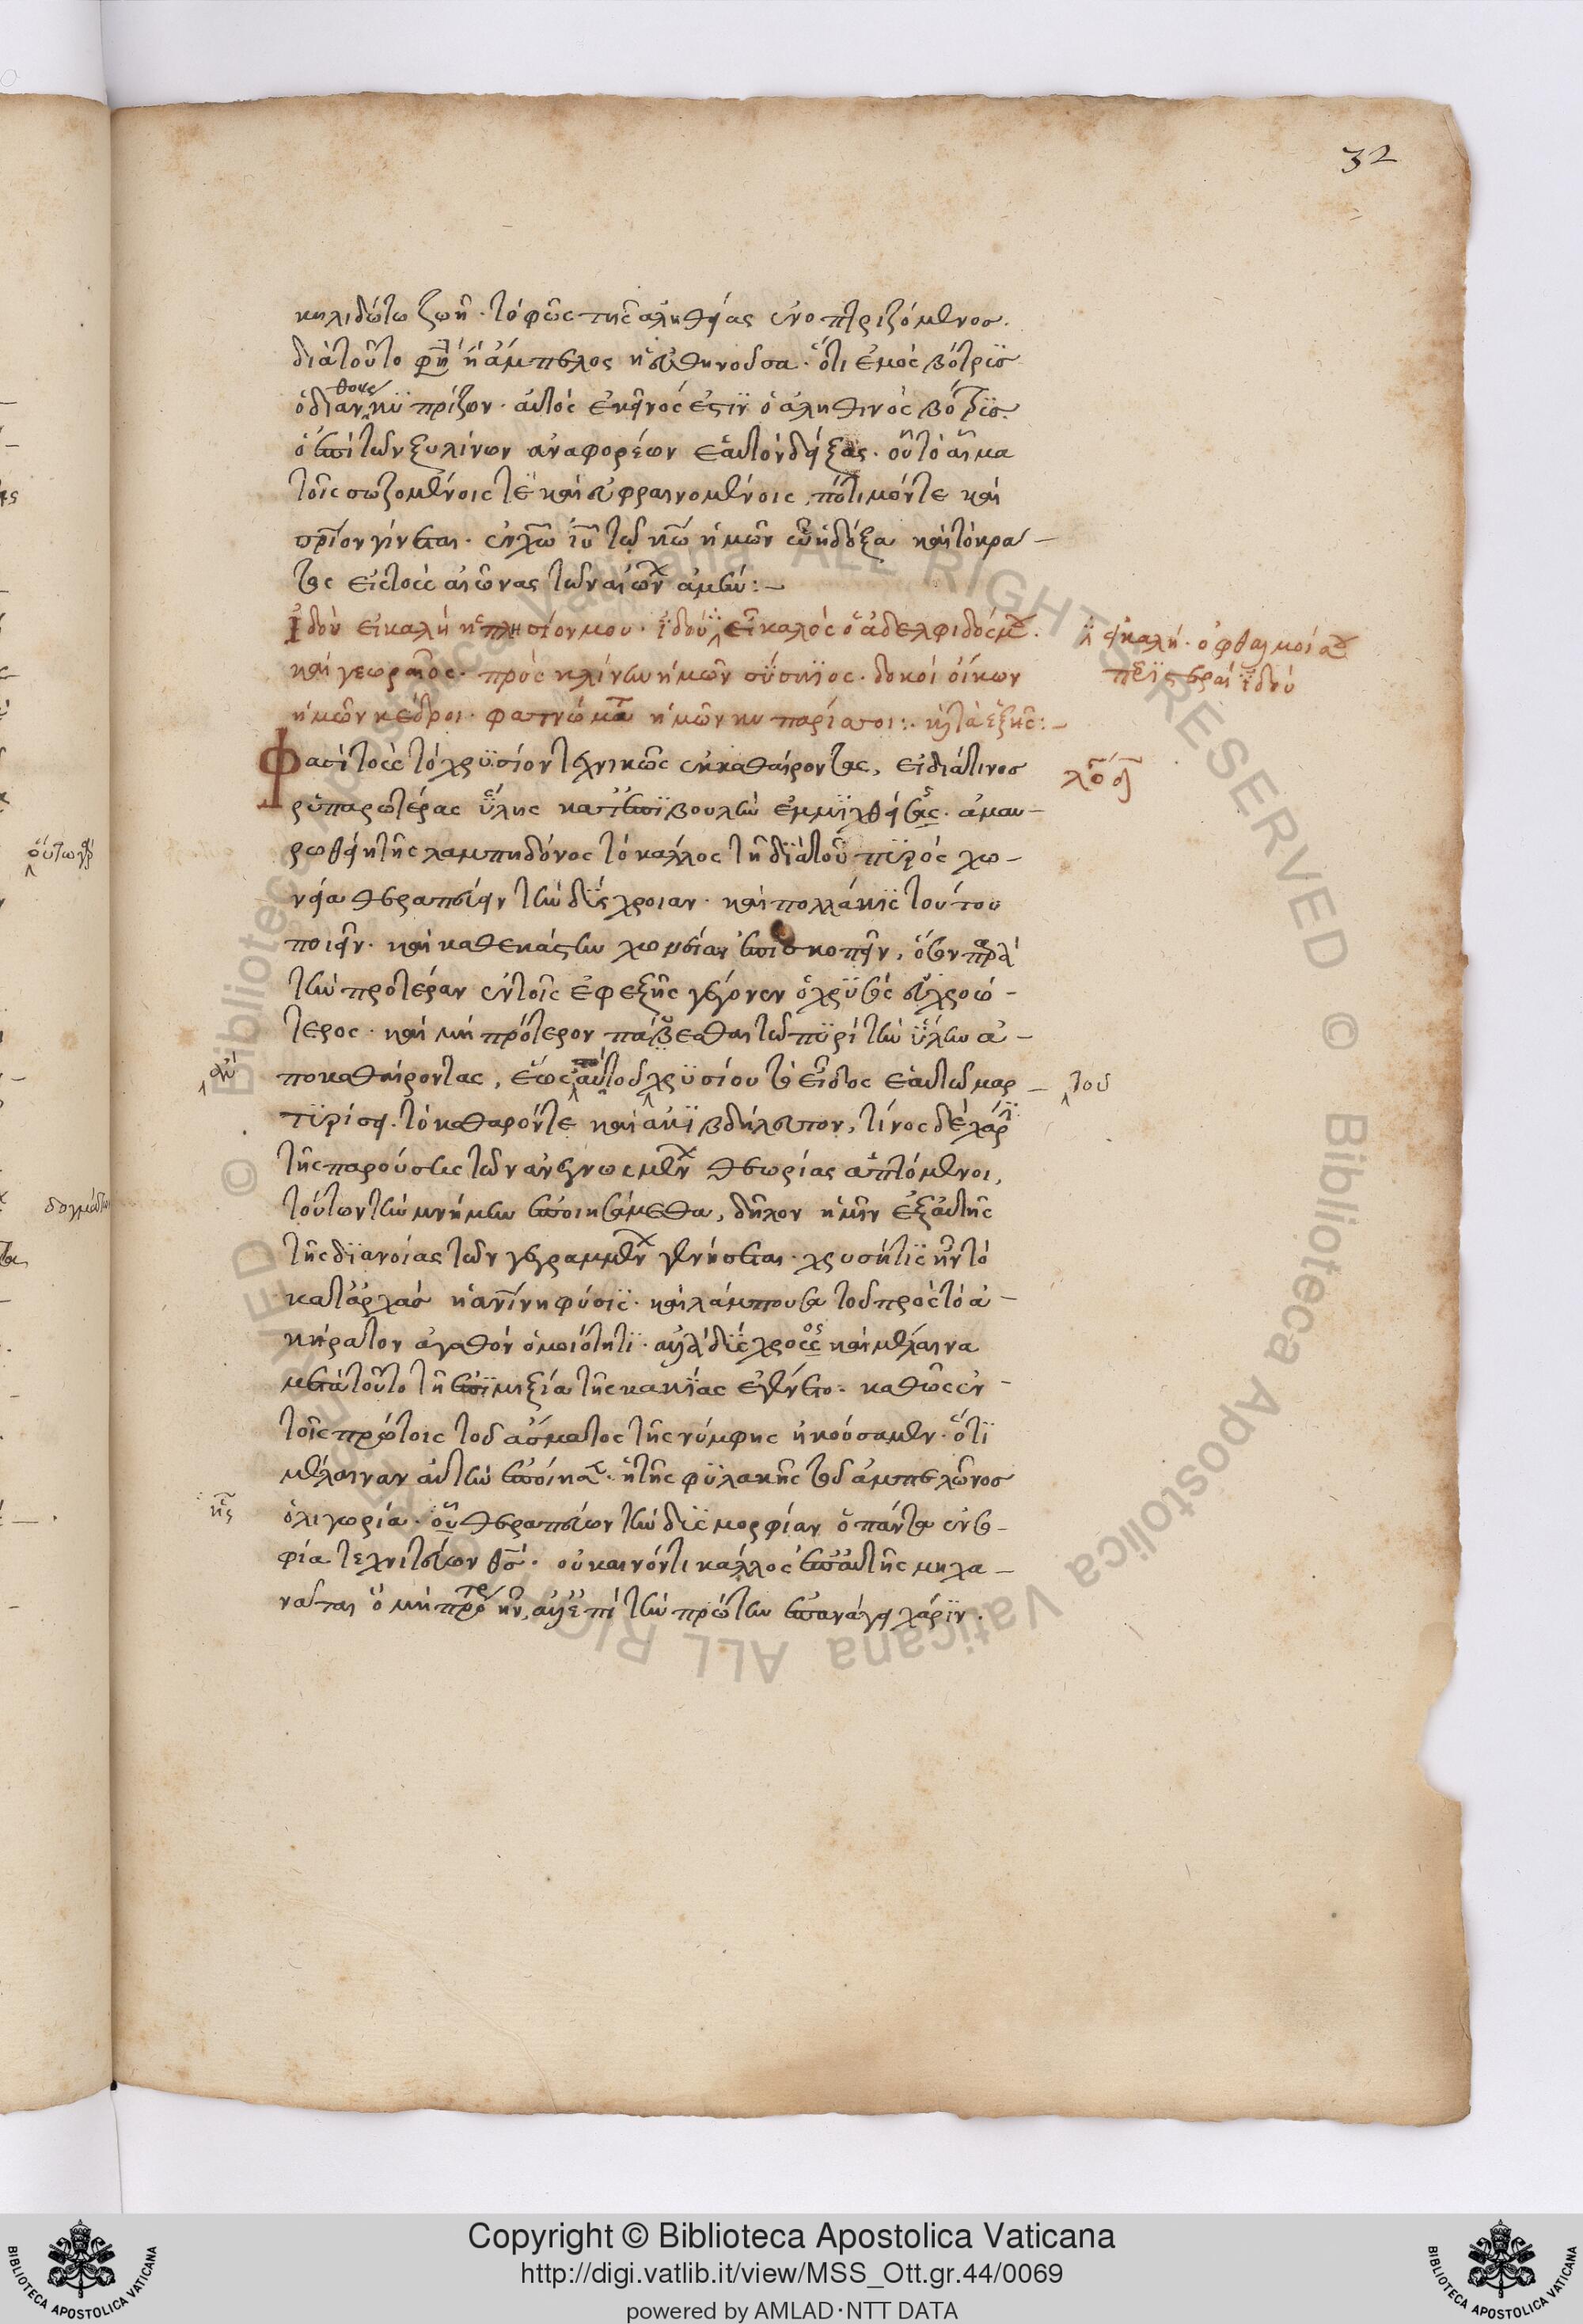 32
κηλιδώτω ζωῆ· τὸ φῶς τῆς ἀληθείας ἐνοπτριζόμενος.
διατοῦτο φησὶ ἡ ἄμπελος ἡ εὐθηνοῦσα· ὅτι ἐμὸς βότρϋς
ὁ διανθοῦς κϋπρίζων· αὐτὸς ἐκεῖνός ἐστϊν ὁ ἀληθινὸς βότρϋς.
ὁ ἐπὶ τῶν ξυλίνων ἀναφορέων ἑαυτὸν δείξας· οὗ τὸ αἷμα
τοῖς σωζομένοις τὲ καὶ εὐφραινομένοις, πότιμόν τε καὶ
σπρίον γίνεται· ἐν χῶ ἰῦ τῶ κῶ ἡμῶν ὧ ἡ δόξα καὶ τὸ κρα-
τος εἰς τοὺς αἰῶνας τῶν αἰών ἀμήν:-
Ἰδοὺ εἶ καλὴ ἡ πλησίον μου· ἰδοὺ εἶ καλὸς ὁ ἀδελφιδός μου.
ἢ εἶ καλή· ὀφθαλμοί σου
περϊστεραί ϊδοὺ
καὶ γε ὡραῖος· πρὸς κλίνην ἡμῶν σύσκϊος· δοκοὶ οἴκων
ἡμῶν κέδροι· φατνώματα ἡμῶν κυπάρισσοι:· κ τὰ ἑξῆς:-
Φασὶ τοὺς τὸ χρϋσίον τεχνικῶς ἐκκαθαίροντας, εἰ διά τινος
λό
ρϋπαρωτέρας ὕλης κατ' ἐπϊβουλὴν ἐμμϊχθείσης· ἀμαυ-
ρωθείη τῆς λαμπηδόνος τὸ κάλλος τῆ διὰ τοῦ πϋρὸς χω-
νεία θεραπεύειν τὴν δύςχροιαν· καὶ πολλάκϊς τοῦτου
ποιεῖν· καὶ καθ' ἑκάστην χωνείαν ἐπισκοπεῖν, ὅσον παρὰ
τὴν προτέραν ἐν τοῖς ἐφεξῆς γέγονεν ὁ χρϋσὸς εὐχροώ-
τερος· καὶ μὴ πρότερον παύεσθαι τῶ πϋρὶ τὴν ὕλην ἀ-
ποκαθαίροντας, ἕως αὐτοῦ χρϋσίου τὸ εἶδος ἑαυτῶ μαρ-
τοῦ
τϋρίσει· τὸ καθαρόν τε καὶ ἀκϊβδήλευτον, τίνος δὲ χάρϊν
τῆς παρούσης τῶν ἀνεγνωσμένων θεωρίας ἁπτόμενοι,
τούτων τὴν μνήμην ἐποιησάμεθα, δῆλον ἡμῖν ἐξ αὐτῆς
τῆς δϊανοίας τῶν γεγραμμένων γενήσεται· χρυσῆ τϊς ἦν τὸ
κατ' ἀρχὰς ἡ ἀνίνη φύσϊς· καὶ λάμπουσα τοῦ πρὸς τὸ ἀ-
κήρατον ἀγαθὸν ὁμοιότητϊ· ἀλλὰ δύςχρους καὶ μέλαινα
μετὰ τοῦτο τῆ ἐπϊμιξία τῆς κακίας ἐγένετο· καθὼς ἐν
τοῖς πρώτοις τοῦ ἄσματος τῆς νύμφης ἠκούσαμεν· ὅτϊ
μέλαιναν αὐτὴν ἐποίησεν· ἡ τῆς φϋλακῆς τοῦ ἀμπελῶνος
ὀλιγωρία· οὗ θεραπεύων τὴν δυςμορφίαν ὁ πάντα ἐν σο-
φία τεχνιτεύων θς· οὐ καινόν τι κάλλος ἐπ' αὐτῆς μηχα-
νᾶται ὃ μὴ πρότερον ἦν, ἀλλ' ἐπὶ τὴν πρώτην ἐπανάγει χάρϊν.